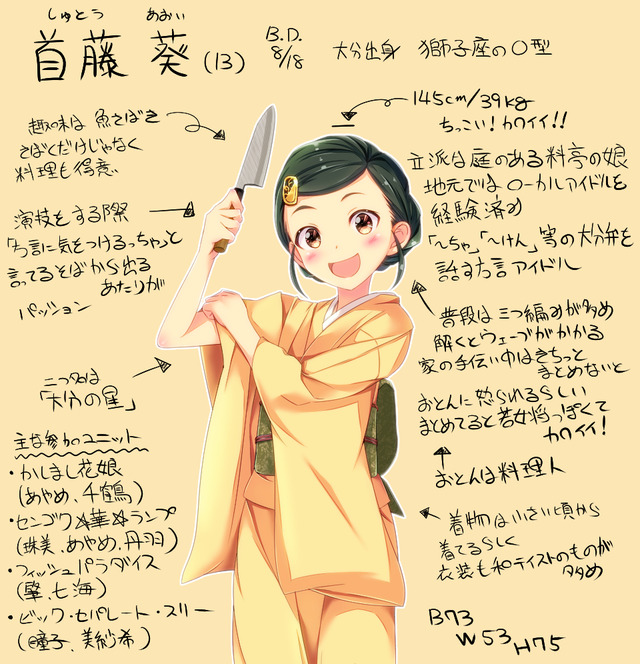 しゅとう あおい
首藤 葵 (13)
B.D.
8/18
大分出身 獅子座のO型
趣味は 魚さばき
さばくだけじゃなく
料理も得意
145cm/39kg
ちっこい!カワイイ!!
立派な庭のある料亭の娘
地元ではローカルアイドルを
経験済み
「〜ちゃ」「〜けん」等の大分弁を
話す方言アイドル
演技をする際
「方言に気をつけるっちゃ」と
言ってるそばから出る
あたりが
パッション
普段は三つ編みが多め
解くとウェーブがかかる
家の手伝い中はきちっと
まとめないと
おとんに怒られるらしい
まとめてると若女将っぽくて
カワイイ!
おとんは料理人
二つ名は
「大分の星」
主な参加ユニット
・かしまし花娘
(あやめ、千鶴)
・センゴク☆華☆ランブ
(珠美、あやめ、丹羽)
・フィッシュパラダイス
(肇、七海)
・ビック・セパレート・スリー
(瞳子、美紗希)
着物は小さい頃から
着てるらしく
衣装も和テイストのものが
多め
B73
W53
H75